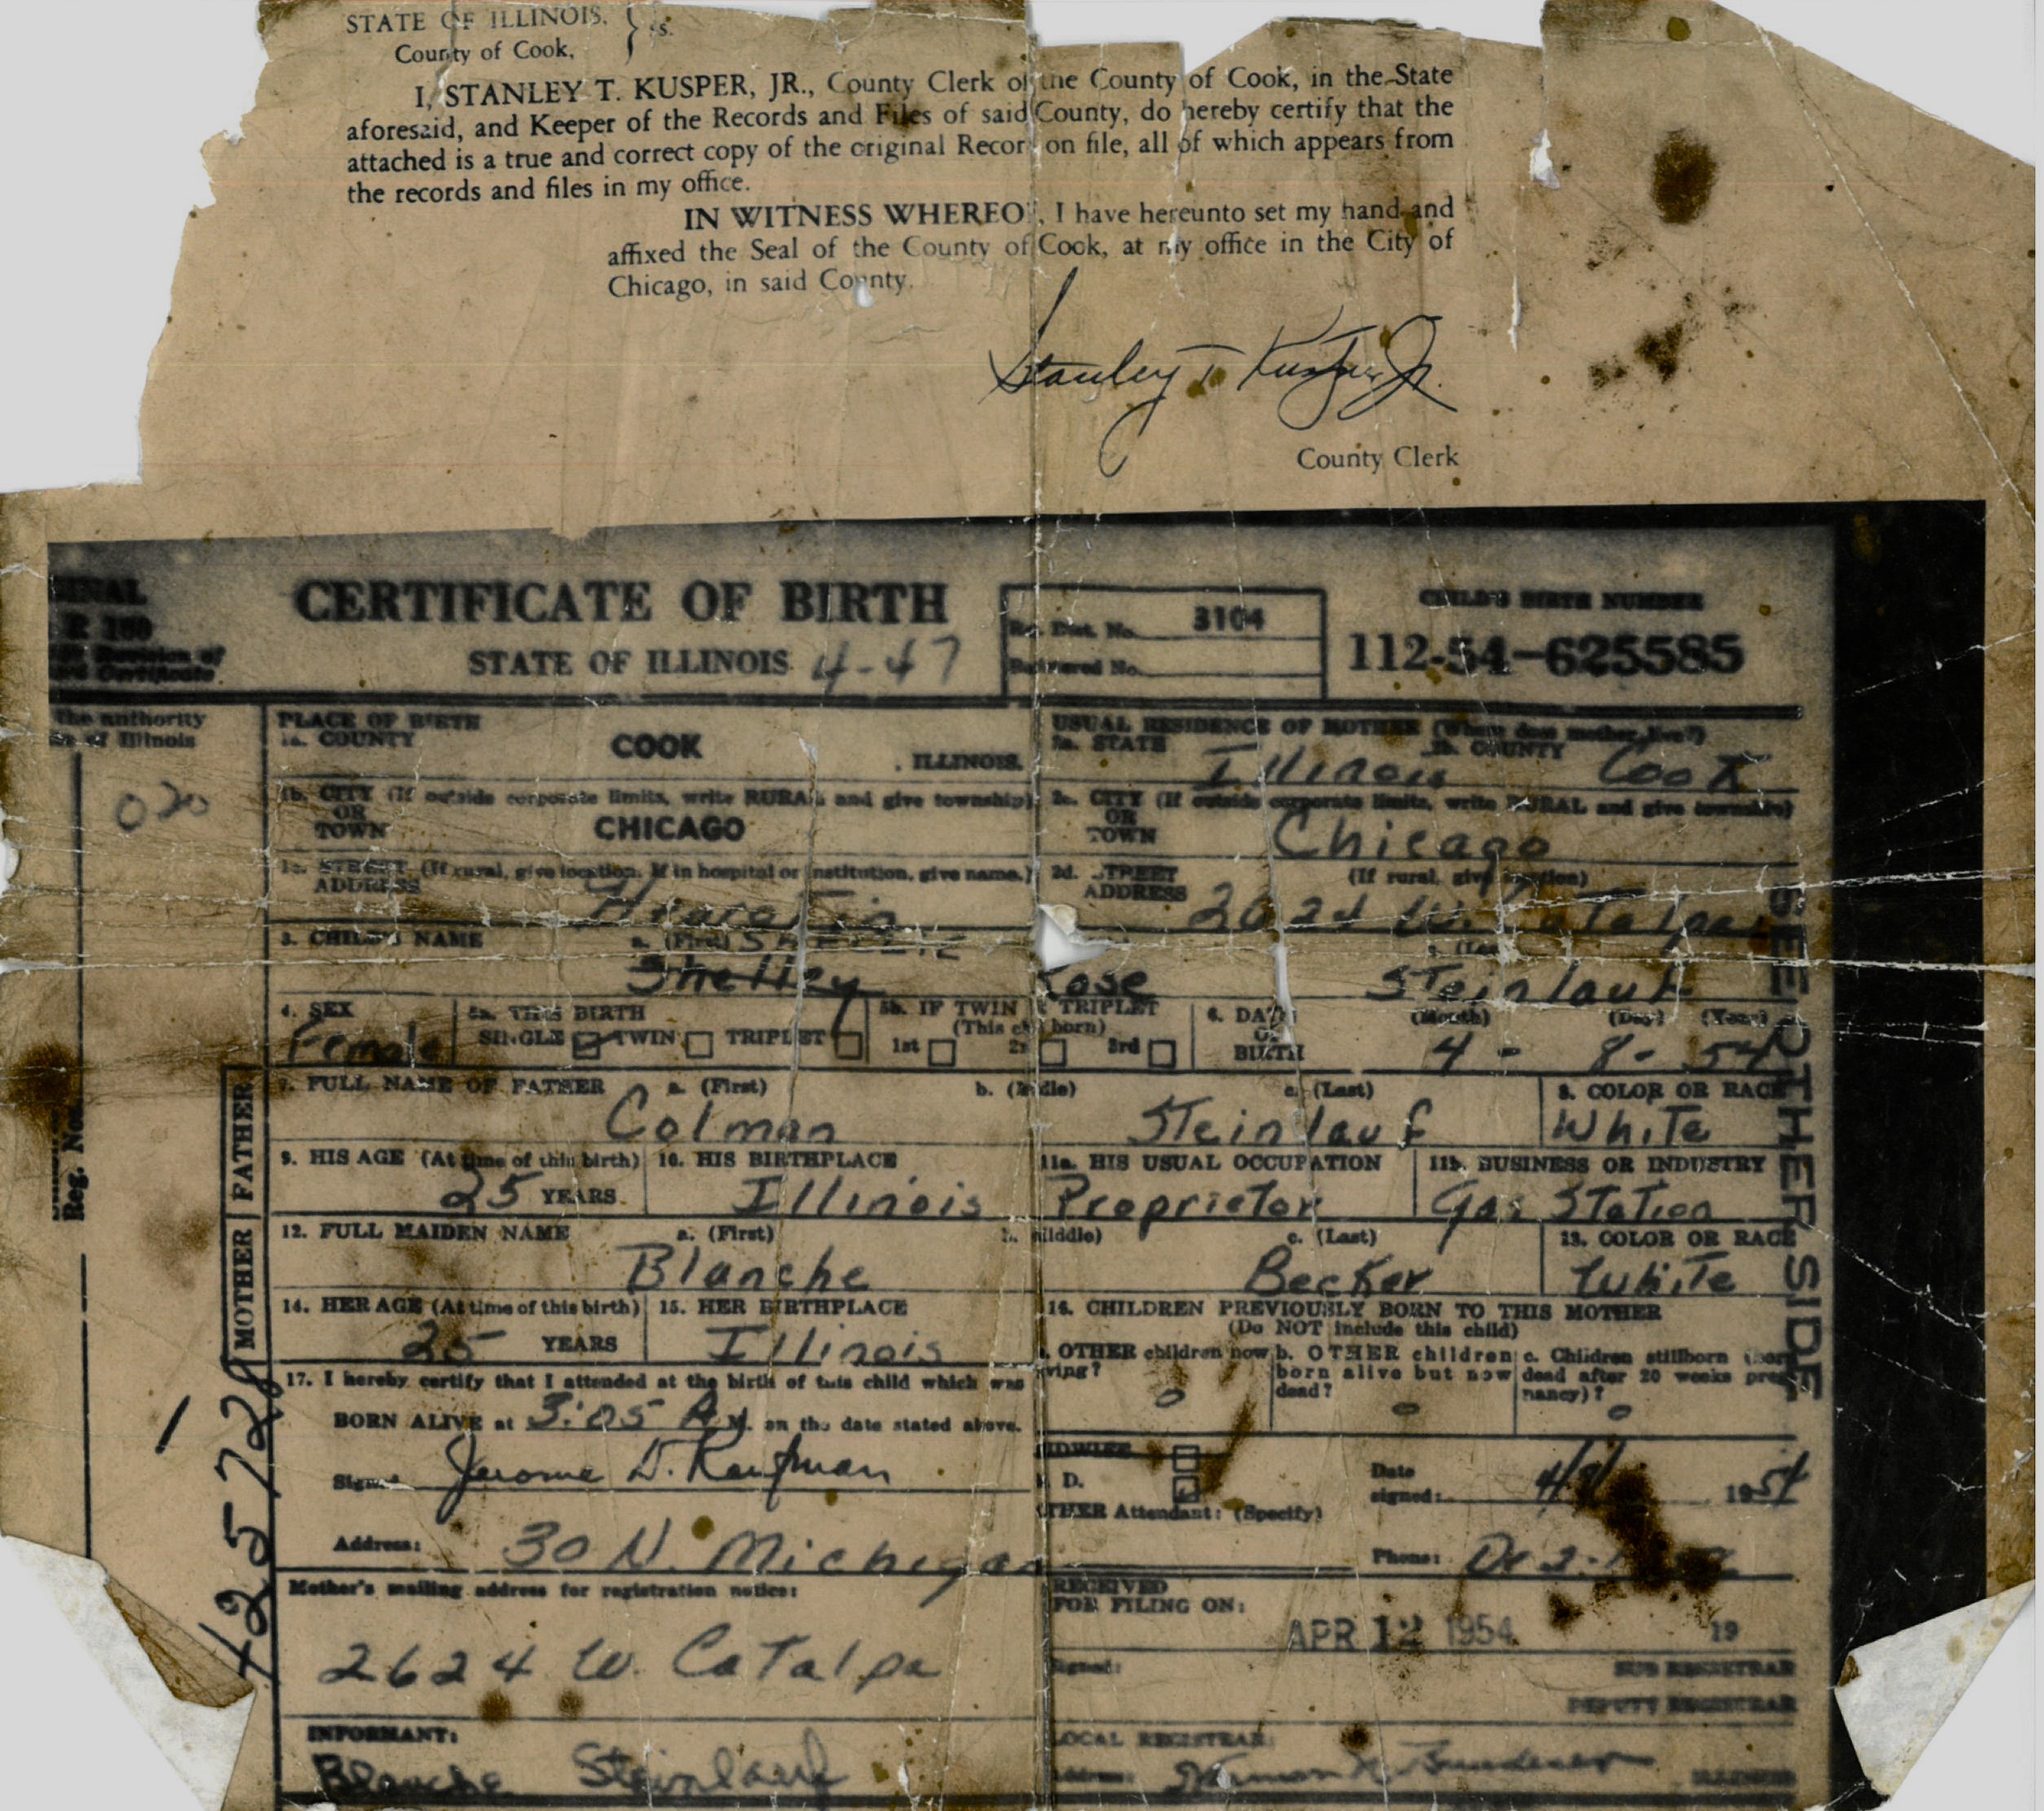 STATE OF ILLINOIS, } ss.
County of Cook,
I, STANLEY T. KUSPER, JR., County Clerk of the County of Cook, in the State
aforesaid, and Keeper of the Records and Files of said County, do hereby certify that the
attached is a true and correct copy of the original Record on file, all of which appears from
the records and files in my office.
IN WITNESS WHEREOF, I have hereunto set my hand and
affixed the Seal of the County of Cook, at my office in the City of
Chicago, in said County.
Stanley T. Kusper Jr.
County Clerk
CERTIFICATE OF BIRTH
STATE OF ILLINOIS 4-47
Dist. No. 3104
Registered No.
CHILD'S BIRTH NUMBER
112-54-625585
The authority
of Illinois
020
PLACE OF BIRTH
1a. COUNTY COOK , ILLINOIS.
USUAL RESIDENCE OF MOTHER (Where does mother live?)
2a. STATE Illinois 2b. COUNTY Cook
1b. CITY (If outside corporate limits, write RURAL and give township)
OR
TOWN CHICAGO
2c. CITY (If outside corporate limits, write RURAL and give township)
OR
TOWN Chicago
1c. STREET (If rural, give location. If in hospital or institution, give name.)
ADDRESS
2d. STREET (If rural, give location)
ADDRESS 2624 W. Catalpa
3. CHILD'S NAME a. (First)
Shelley Rose Steinlauf
4. SEX
Female
5a. THIS BIRTH
SINGLE TWIN TRIPLET
5b. IF TWIN OR TRIPLET
(This child born)
1st 2nd 3rd
6. DATE
OF
BIRTH
(Month) (Day) (Year)
4 - 8 - 54
FATHER
7. FULL NAME OF FATHER a. (First) b. (Middle) c. (Last)
Colman Steinlauf
8. COLOR OR RACE
White
9. HIS AGE (At time of this birth)
25 YEARS
10. HIS BIRTHPLACE
Illinois
11a. HIS USUAL OCCUPATION
Proprietor
11b. BUSINESS OR INDUSTRY
Gas Station
MOTHER
12. FULL MAIDEN NAME a. (First) b. (Middle) c. (Last)
Blanche Becker
13. COLOR OR RACE
White
14. HER AGE (At time of this birth)
25 YEARS
15. HER BIRTHPLACE
Illinois
16. CHILDREN PREVIOUSLY BORN TO THIS MOTHER
(Do NOT include this child)
a. OTHER children now living? 0
b. OTHER children born alive but now dead? 0
c. Children stillborn (born dead after 20 weeks pregnancy)? 0
17. I hereby certify that I attended at the birth of this child which was
BORN ALIVE at 3:05 A M. on the date stated above.
Signed Jerome D. Kaufman
MIDWIFE
M. D.
OTHER Attendant: (Specify)
Date
signed: 4/8/ 1954
Address: 30 N. Michigan
Phone:
Mother's mailing address for registration notice:
2624 W. Catalpa
RECEIVED
FOR FILING ON:
APR 12 1954 19
Signed:
SUB REGISTRAR
DEPUTY REGISTRAR
INFORMANT:
Blanche Steinlauf
LOCAL REGISTRAR:
Address: ILLINOIS
SEE OTHER SIDE
Reg. No.